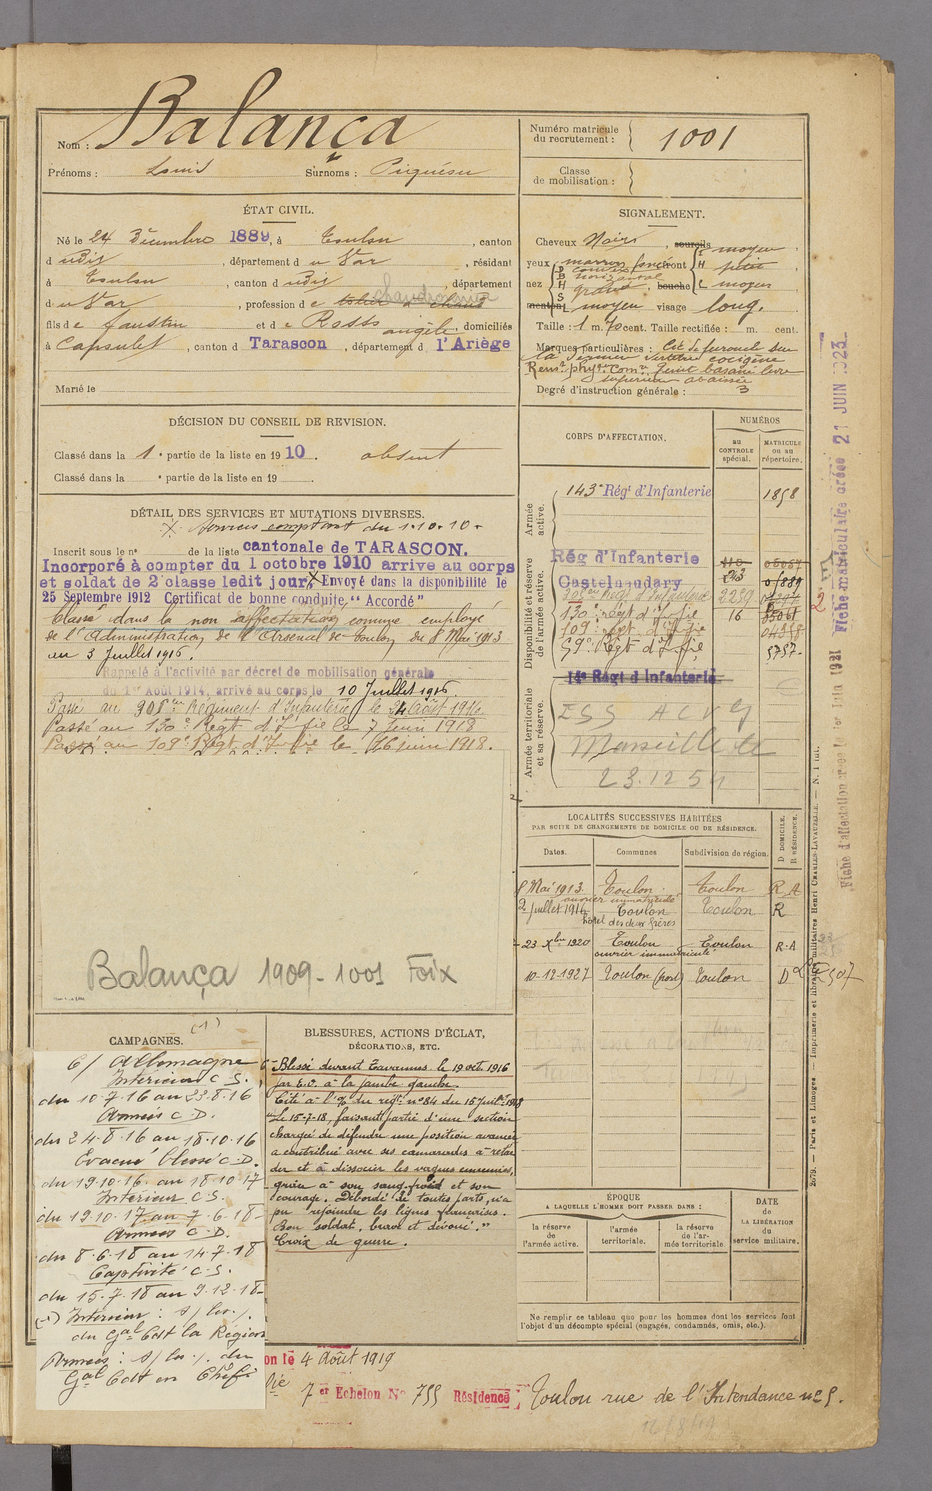 Nom : Balança
Prénoms : Louis Surnoms :
ÉTAT CIVIL.
Né le 24 Décembre 1889, à Toulon, canton
d udit, département d u Var, résidant
à Toulon, canton d udit, département
d u Var, profession d e
fils de Faustin et d e Rosso Angèle, domiciliés
à Capsulet, canton d Tarascon, département d l'Ariège
Marié le
DÉCISION DU CONSEIL DE REVISION.
Classé dans la 1e partie de la liste en 1910. absent
Classé dans la e partie de la liste en 19 .
DÉTAIL DES SERVICES ET MUTATIONS DIVERSES.
X Services comptant du 1.10.10.
Inscrit sous le n° de la liste cantonale de TARASCON.
Incorporé à compter du 1 octobre 1910 arrive au corps
et soldat de 2e classe ledit jour, X Envoyé dans la disponibilité le
25 Septembre 1912 Certificat de bonne conduite "Accordé"
Classé dans la non affectation comme employé
de l'Administration de l'Arsenal de Toulon du 8 Mai 1913
au 3 Juillet 1916.
Rappelé à l'activité par décret de mobilisation générale
du 1er Août 1914, arrivé au corps le 10 Juillet 1916.
Passé au 308ème Régiment d'Infanterie le 24 Août 1916
Passé au 130e Régt d'Ifrie le 7 Juin 1918
Passé au 109e Régt d'Ifrie le 16 juin 1918.
Balança 1909-1001 Foix
CAMPAGNES.
(1)
C/ Allemagne
Intérieur C.S.
du 10-7-16 au 23-8-16
Armées C.D.
du 24-8-16 au 18-10-16
Évacué blessé C.D.
du 19-10-16 au 18-10-17
Intérieur C.S.
du 19-10-17 au 7-6-18
Armées C.D.
du 8-6-18 au 14-7-18
Captivité C.S.
du 15-7-18 au 9-12-18
(1) Intérieur :
du Gal Cdt la Région
Armées : du
Gal Cdt en Chef
BLESSURES, ACTIONS D'ÉCLAT,
DÉCORATIONS, ETC.
Blessé devant Tavannes le 19 oct. 1916
par E.O. à la jambe gauche.
Cité à l'O/ du régt n° 84 du 15 Juillt 1918
"Le 15-7-18, faisant partie d'une section
chargée de défendre une position avancée
a contribué avec ses camarades à retar
der et à dissocier les vagues ennemies,
grâce à son sang-froid et son
courage. Débordé de toutes parts, n'a
pu rejoindre les lignes françaises.
Bon soldat, brave et dévoué."
Croix de guerre.
on le 4 Août 1919
7 er Echelon N° 755 Résidence Toulon rue de l'Intendance n° 5.
Numéro matricule du recrutement : 1001
Classe de mobilisation :
SIGNALEMENT.
Cheveux Noirs, sourcils moyen
yeux marron foncé front petit
nez grand, bouche moyen
menton moyen visage long.
Taille : 1 m. 70 cent. Taille rectifiée : m. cent.
Marques particulières : Cic. de furoncle sur
Rensts physques Comre teint basané lèvre
supérieure abaissée
Degré d'instruction générale : 3
CORPS D'AFFECTATION.
NUMÉROS
au CONTROLE spécial.
MATRICULE ou au répertoire.
Armée active.
143e Régt d'Infanterie 1858
Disponibilité et réserve de l'armée active.
Rég d'Infanterie
Castelnaudary
308ème Rég d'Infanterie 2239
130e régt d'Ifrie 16
109e régt d'Ifrie
59e Régt d'Ifrie 5757
Armée territoriale et sa réserve.
14e Régt d'Infanterie
Marseille
23.12.54
LOCALITÉS SUCCESSIVES HABITÉES
PAR SUITE DE CHANGEMENTS DE DOMICILE OU DE RÉSIDENCE.
Dates. Communes Subdivision de région. D DOMICILE. R RÉSIDENCE.
8 Mai 1913 Toulon Toulon R A
ouvrier immatriculé
2 Juillet 1916 Toulon Toulon R
hôtel des deux frères
23 Xbre 1920 Toulon Toulon R.A
ouvrier immatriculé
10-12-1927 Toulon (port) Toulon D
ÉPOQUE
A LAQUELLE L'HOMME DOIT PASSER DANS :
la réserve de l'armée active.
l'armée territoriale.
la réserve de l'armée territoriale.
DATE de LA LIBÉRATION du service militaire.
Ne remplir ce tableau que pour les hommes dont les services font
l'objet d'un décompte spécial (engagés, condamnés, omis, etc.).
Fiche matriculaire créée 21 JUIN 1923
Fiche d'affectation créée le 1er Juin 1921
2679. — Paris et Limoges. — Imprimerie et librairie militaires Henri CHARLES-LAVAUZELLE. — N. 1 int.